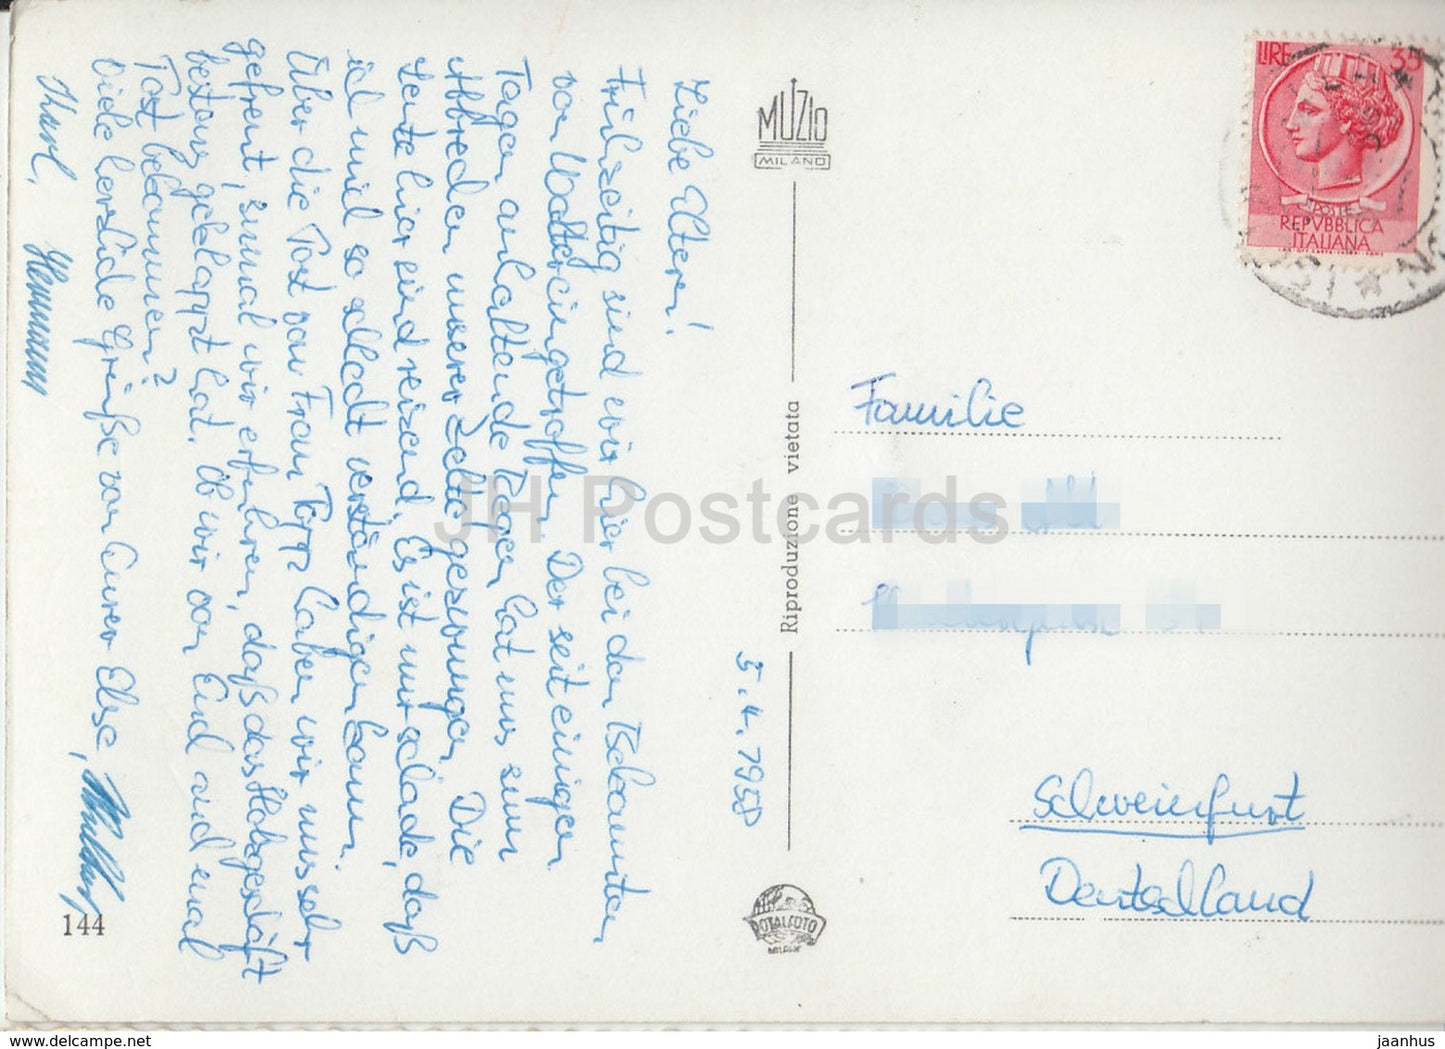 Liebe Eltern!
Frühzeitig sind wir hier bei den Bekannten
von Walter eingetroffen. Der seit einigen
Tagen anhaltende Regen hat uns zum
Abbrechen unserer Zelte gezwungen. Die
Leute hier sind reizend. Es ist nur schade, daß
ich mich so schlecht verständigen kann.
Über die Post von Frau Topp haben wir uns sehr
gefreut, zumal wir erfuhren, daß das
bestens geklappt hat. Ob wir von Euch noch mal
Post bekommen?
Viele herzliche Grüße von Eurer Else,
Karl, Hermann
5.4.1958
144
MUZIO
MILANO
Riproduzione vietata
ROTALFOTO
MILANO
LIRE 35
POSTE
REPVBBLICA
ITALIANA
Familie
Schweinfurt
Deutschland
JH Postcards
delcampe.net
jaanhus